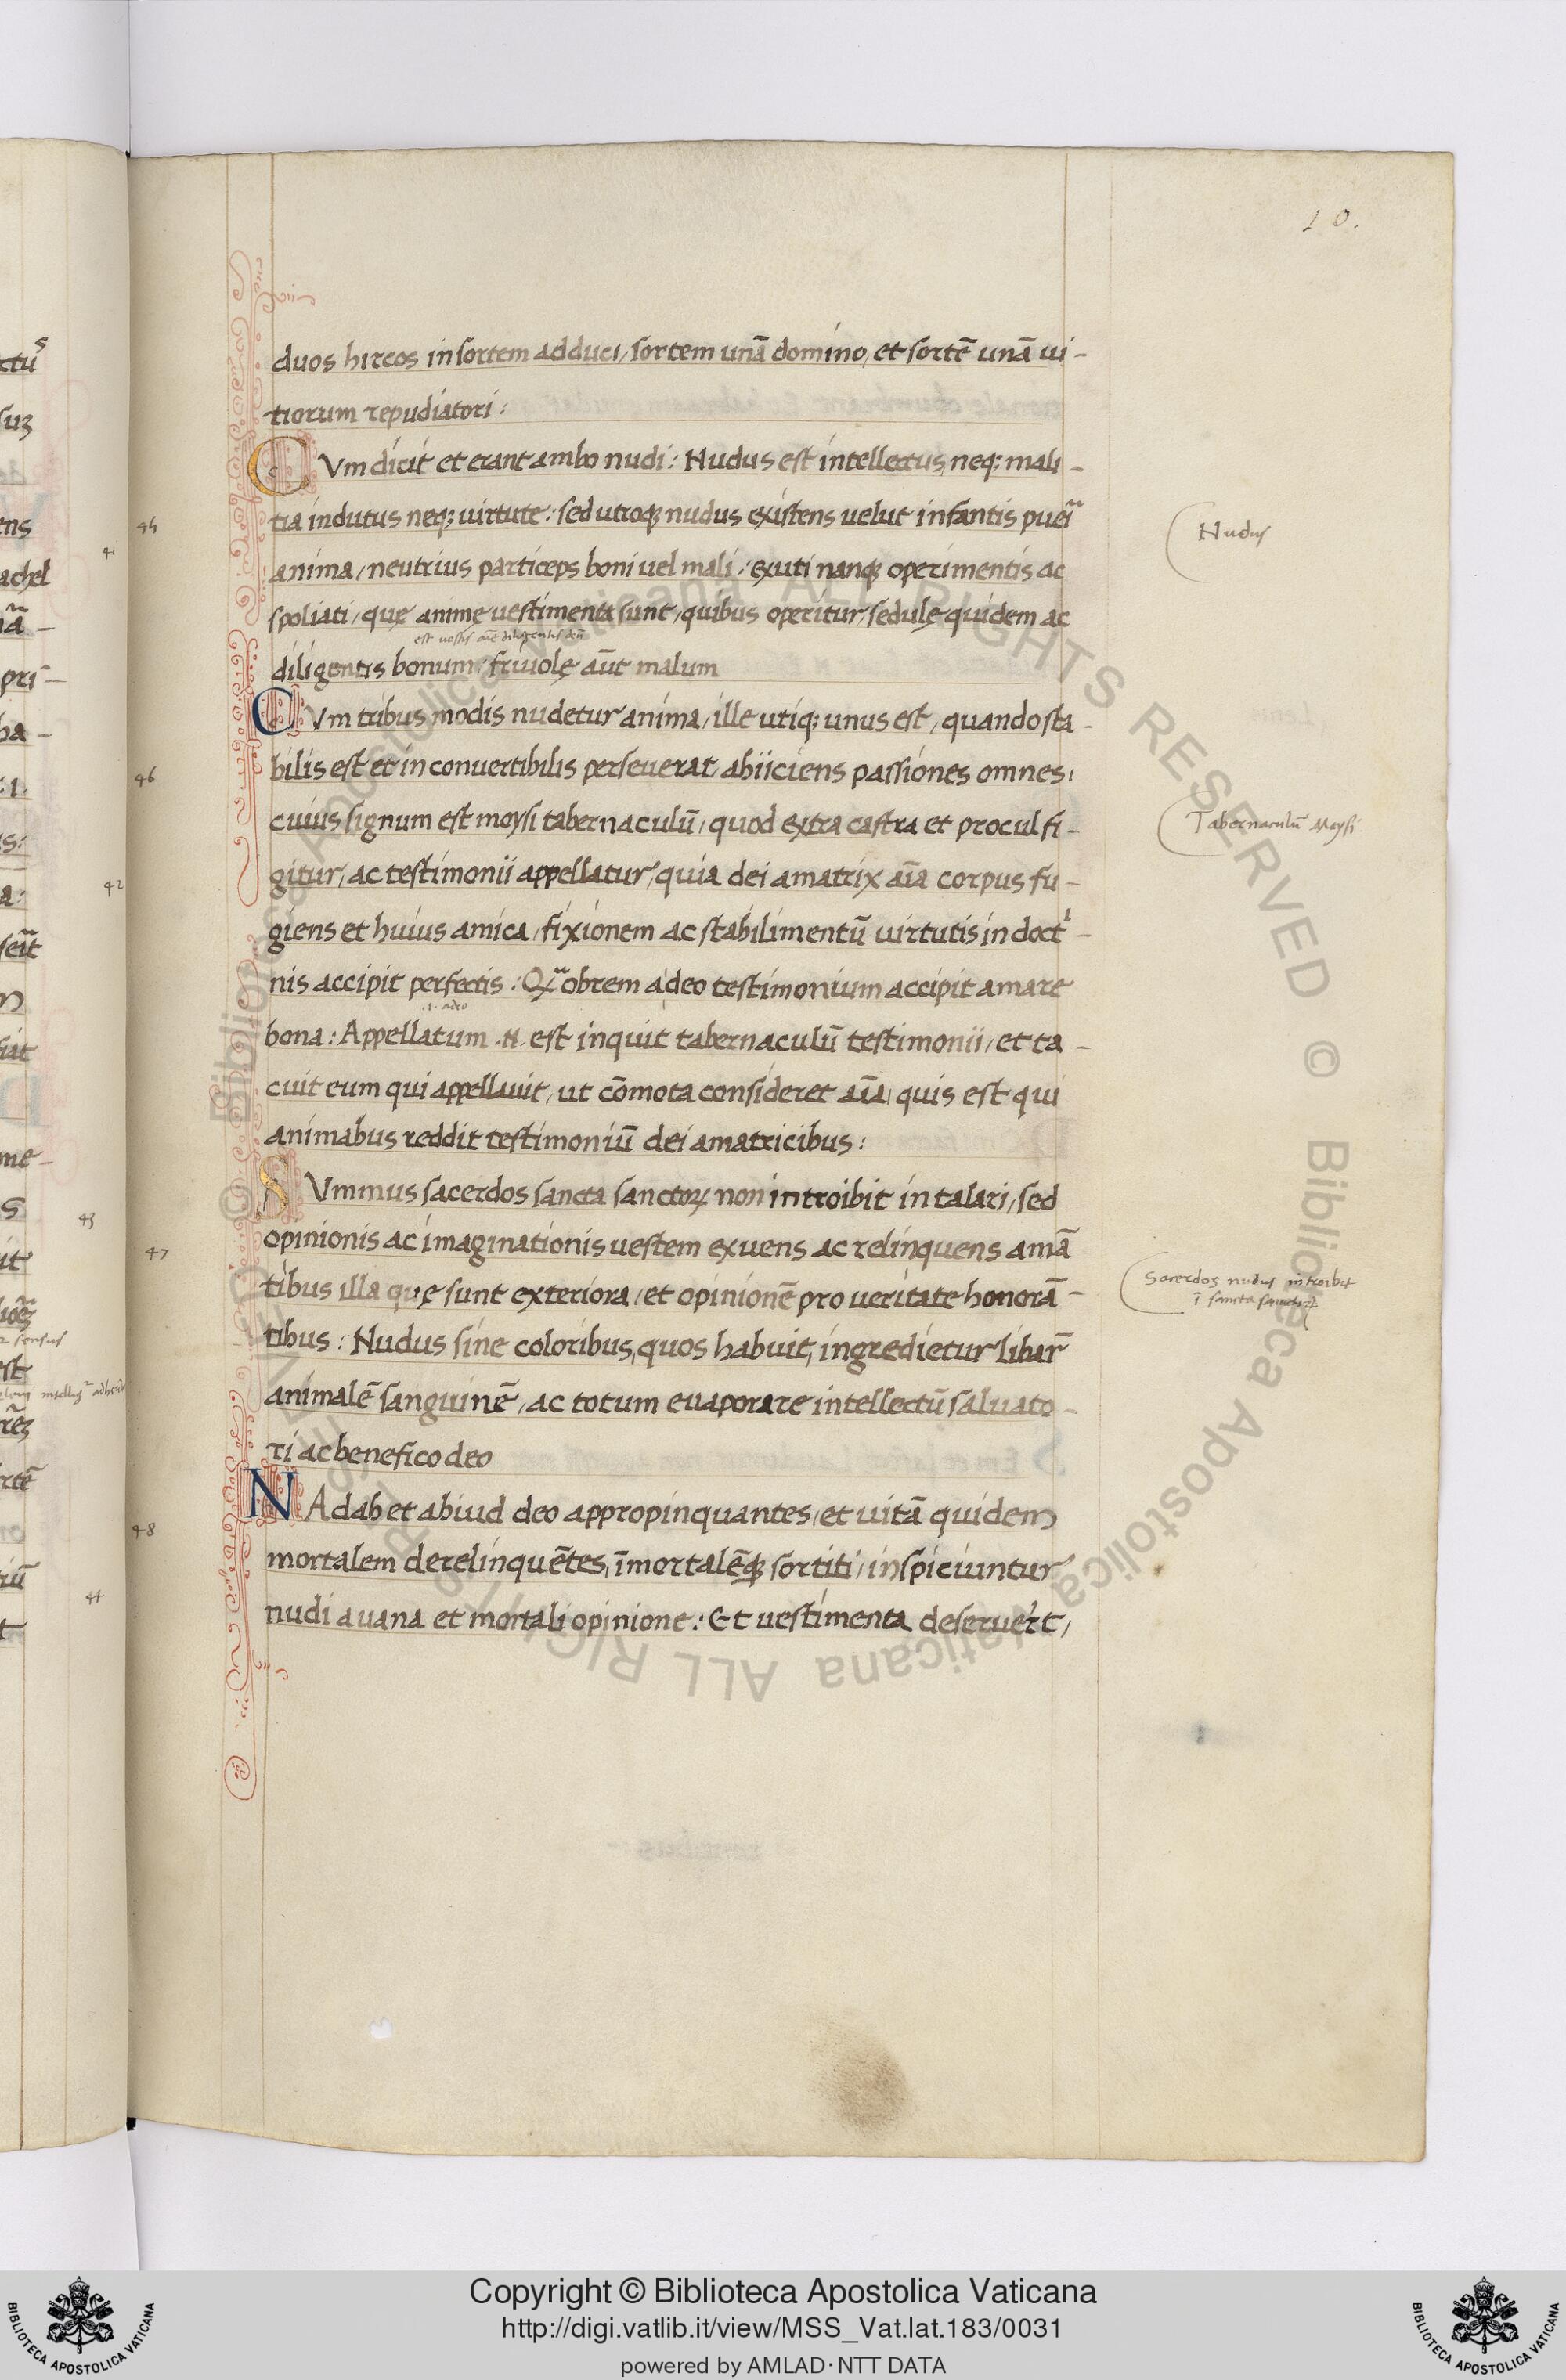 10.
duos hircos in sortem adduci, sortem unā domino, et sortē unā ui-
tiorum repudiatori:
CVm dicit et erant ambo nudi: Nudus est intellectus, neq; mali-
tia indutus neq; uirtute: sed utroq; nudus existens uelut infantis pueri
anima, neutrius particeps boni uel mali: exuti nanq; operimentis ac
spoliati, quę animę uestimenta sunt, quibus operitur, sedulę quidem ac
est uestis
diligentis bonum: friuolę aūt malum
CVm tribus modis nudetur anima, ille utiq; unus est, quando sta-
bilis est et inconuertibilis perseuerat, abiiciens passiones omnes,
cuius signum est moysi tabernaculū, quod extra castra et procul fi-
gitur, ac testimonii appellatur, quia dei amatrix aīa corpus fu-
giens et huius amica, fixionem ac stabilimentū uirtutis in doct-
nis accipit perfectis: Qobrem a deo testimonium accipit amare
.i. a deo
bona: Appellatum .N. est inquit tabernaculū testimonii, et ta-
cuit eum qui appellauit, ut cōmota consideret aīa, quis est qui
animabus reddit testimoniū dei amatricibus:
SVmmus sacerdos sancta sanctoꝝ non introibit in talari, sed
opinionis ac imaginationis uestem exuens ac relinquens amā
tibus illa quę sunt exteriora, et opinionē pro ueritate honorā-
tibus: Nudus sine coloribus, quos habuit, ingredietur libar̄
animalē sanguinē, ac totum euaporare intellectū saluato-
ri ac benefico deo
NAdab et abiud deo appropinquantes, et uitā quidem
mortalem derelinquētes, īmortalēq; sortiti, inspiciuntur
nudi a uana et mortali opinione: Et uestimenta deseruer̄t,
45
46
47
48
Nudus
Tabernaculū Moysi
Sacerdos nudus introibit
ī sancta sanctoꝝ
41
42
43
44
© Biblioteca Apostolica Vaticana ALL RIGHTS RESERVED © Biblioteca Apostolica Vaticana ALL RIGHTS RESERVED
Copyright © Biblioteca Apostolica Vaticana
http://digi.vatlib.it/view/MSS_Vat.lat.183/0031
powered by AMLAD·NTT DATA
BIBLIOTECA APOSTOLICA VATICANA
BIBLIOTECA APOSTOLICA VATICANA